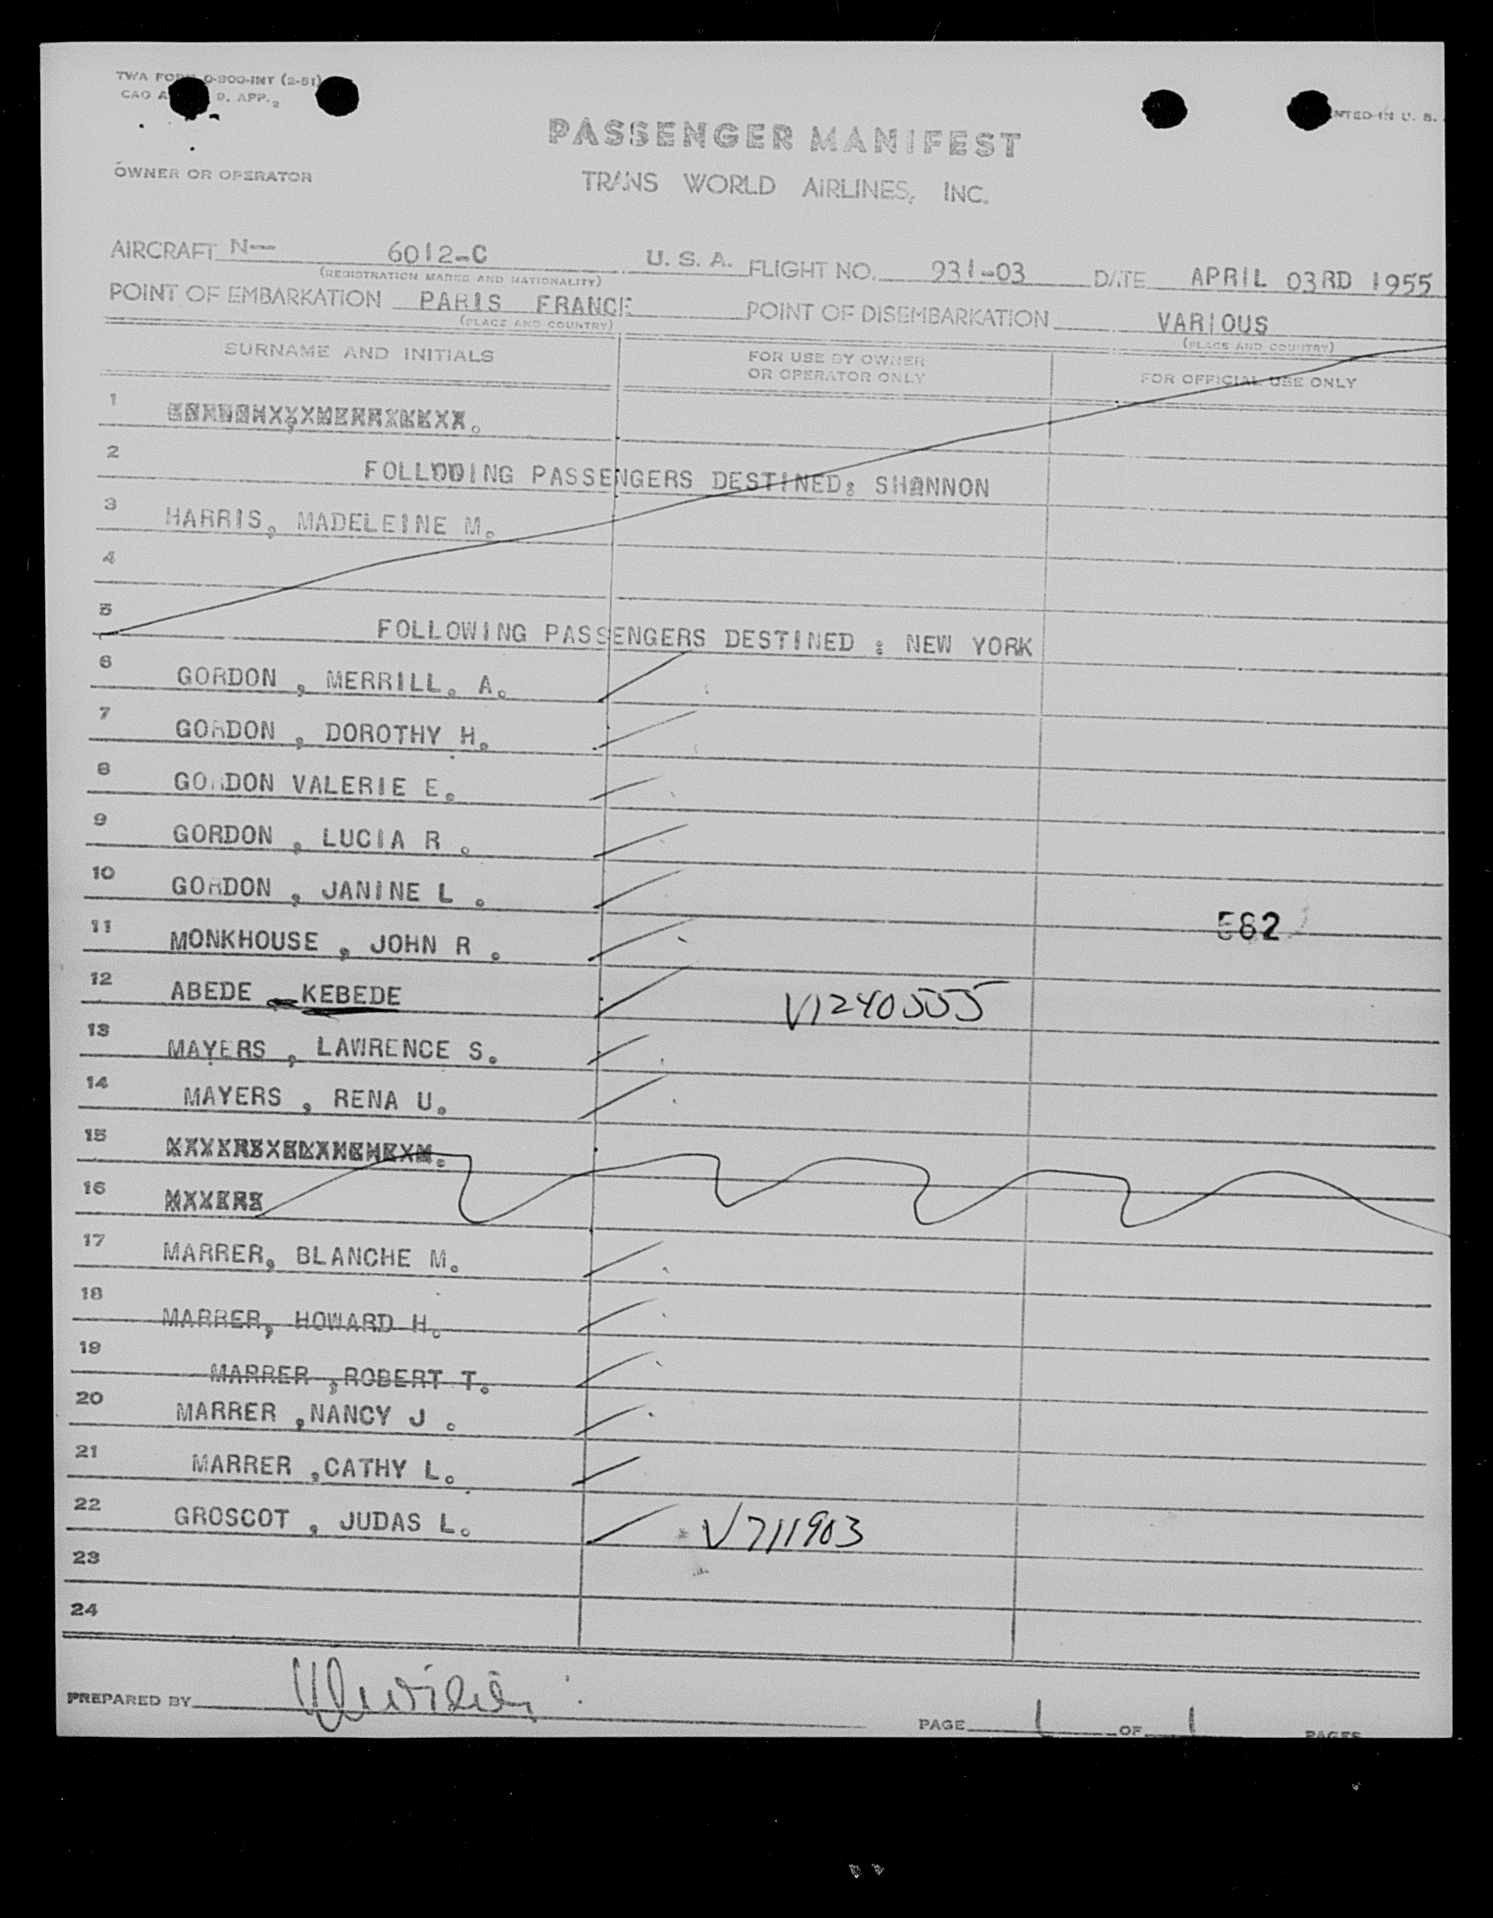 TWA FORM O-800-INT (2-51)
CAO A D. APP. 2
NTED IN U. S.
PASSENGER MANIFEST
OWNER OR OPERATOR
TRANS WORLD AIRLINES, INC.
AIRCRAFT N-- 6012-C U. S. A. FLIGHT NO. 931-03 DATE APRIL 03RD 1955
(REGISTRATION MARKS AND NATIONALITY)
POINT OF EMBARKATION PARIS FRANCE POINT OF DISEMBARKATION VARIOUS
(PLACE AND COUNTRY) (PLACE AND COUNTRY)
SURNAME AND INITIALS FOR USE BY OWNER OR OPERATOR ONLY FOR OFFICIAL USE ONLY
1
2 FOLLOWING PASSENGERS DESTINED: SHANNON
3 HARRIS, MADELEINE M.
4
5 FOLLOWING PASSENGERS DESTINED : NEW YORK
6 GORDON , MERRILL. A.
7 GORDON , DOROTHY H.
8 GORDON VALERIE E.
9 GORDON , LUCIA R .
10 GORDON , JANINE L .
11 MONKHOUSE , JOHN R . 562
12 ABEDE KEBEDE V1240555
13 MAYERS , LAWRENCE S.
14 MAYERS , RENA U.
15
16
17 MARRER, BLANCHE M.
18 MARRER, HOWARD H.
19 MARRER ,ROBERT T.
20 MARRER ,NANCY J .
21 MARRER ,CATHY L.
22 GROSCOT , JUDAS L. V711903
23
24
PREPARED BY
PAGE 1 OF 1 PAGES